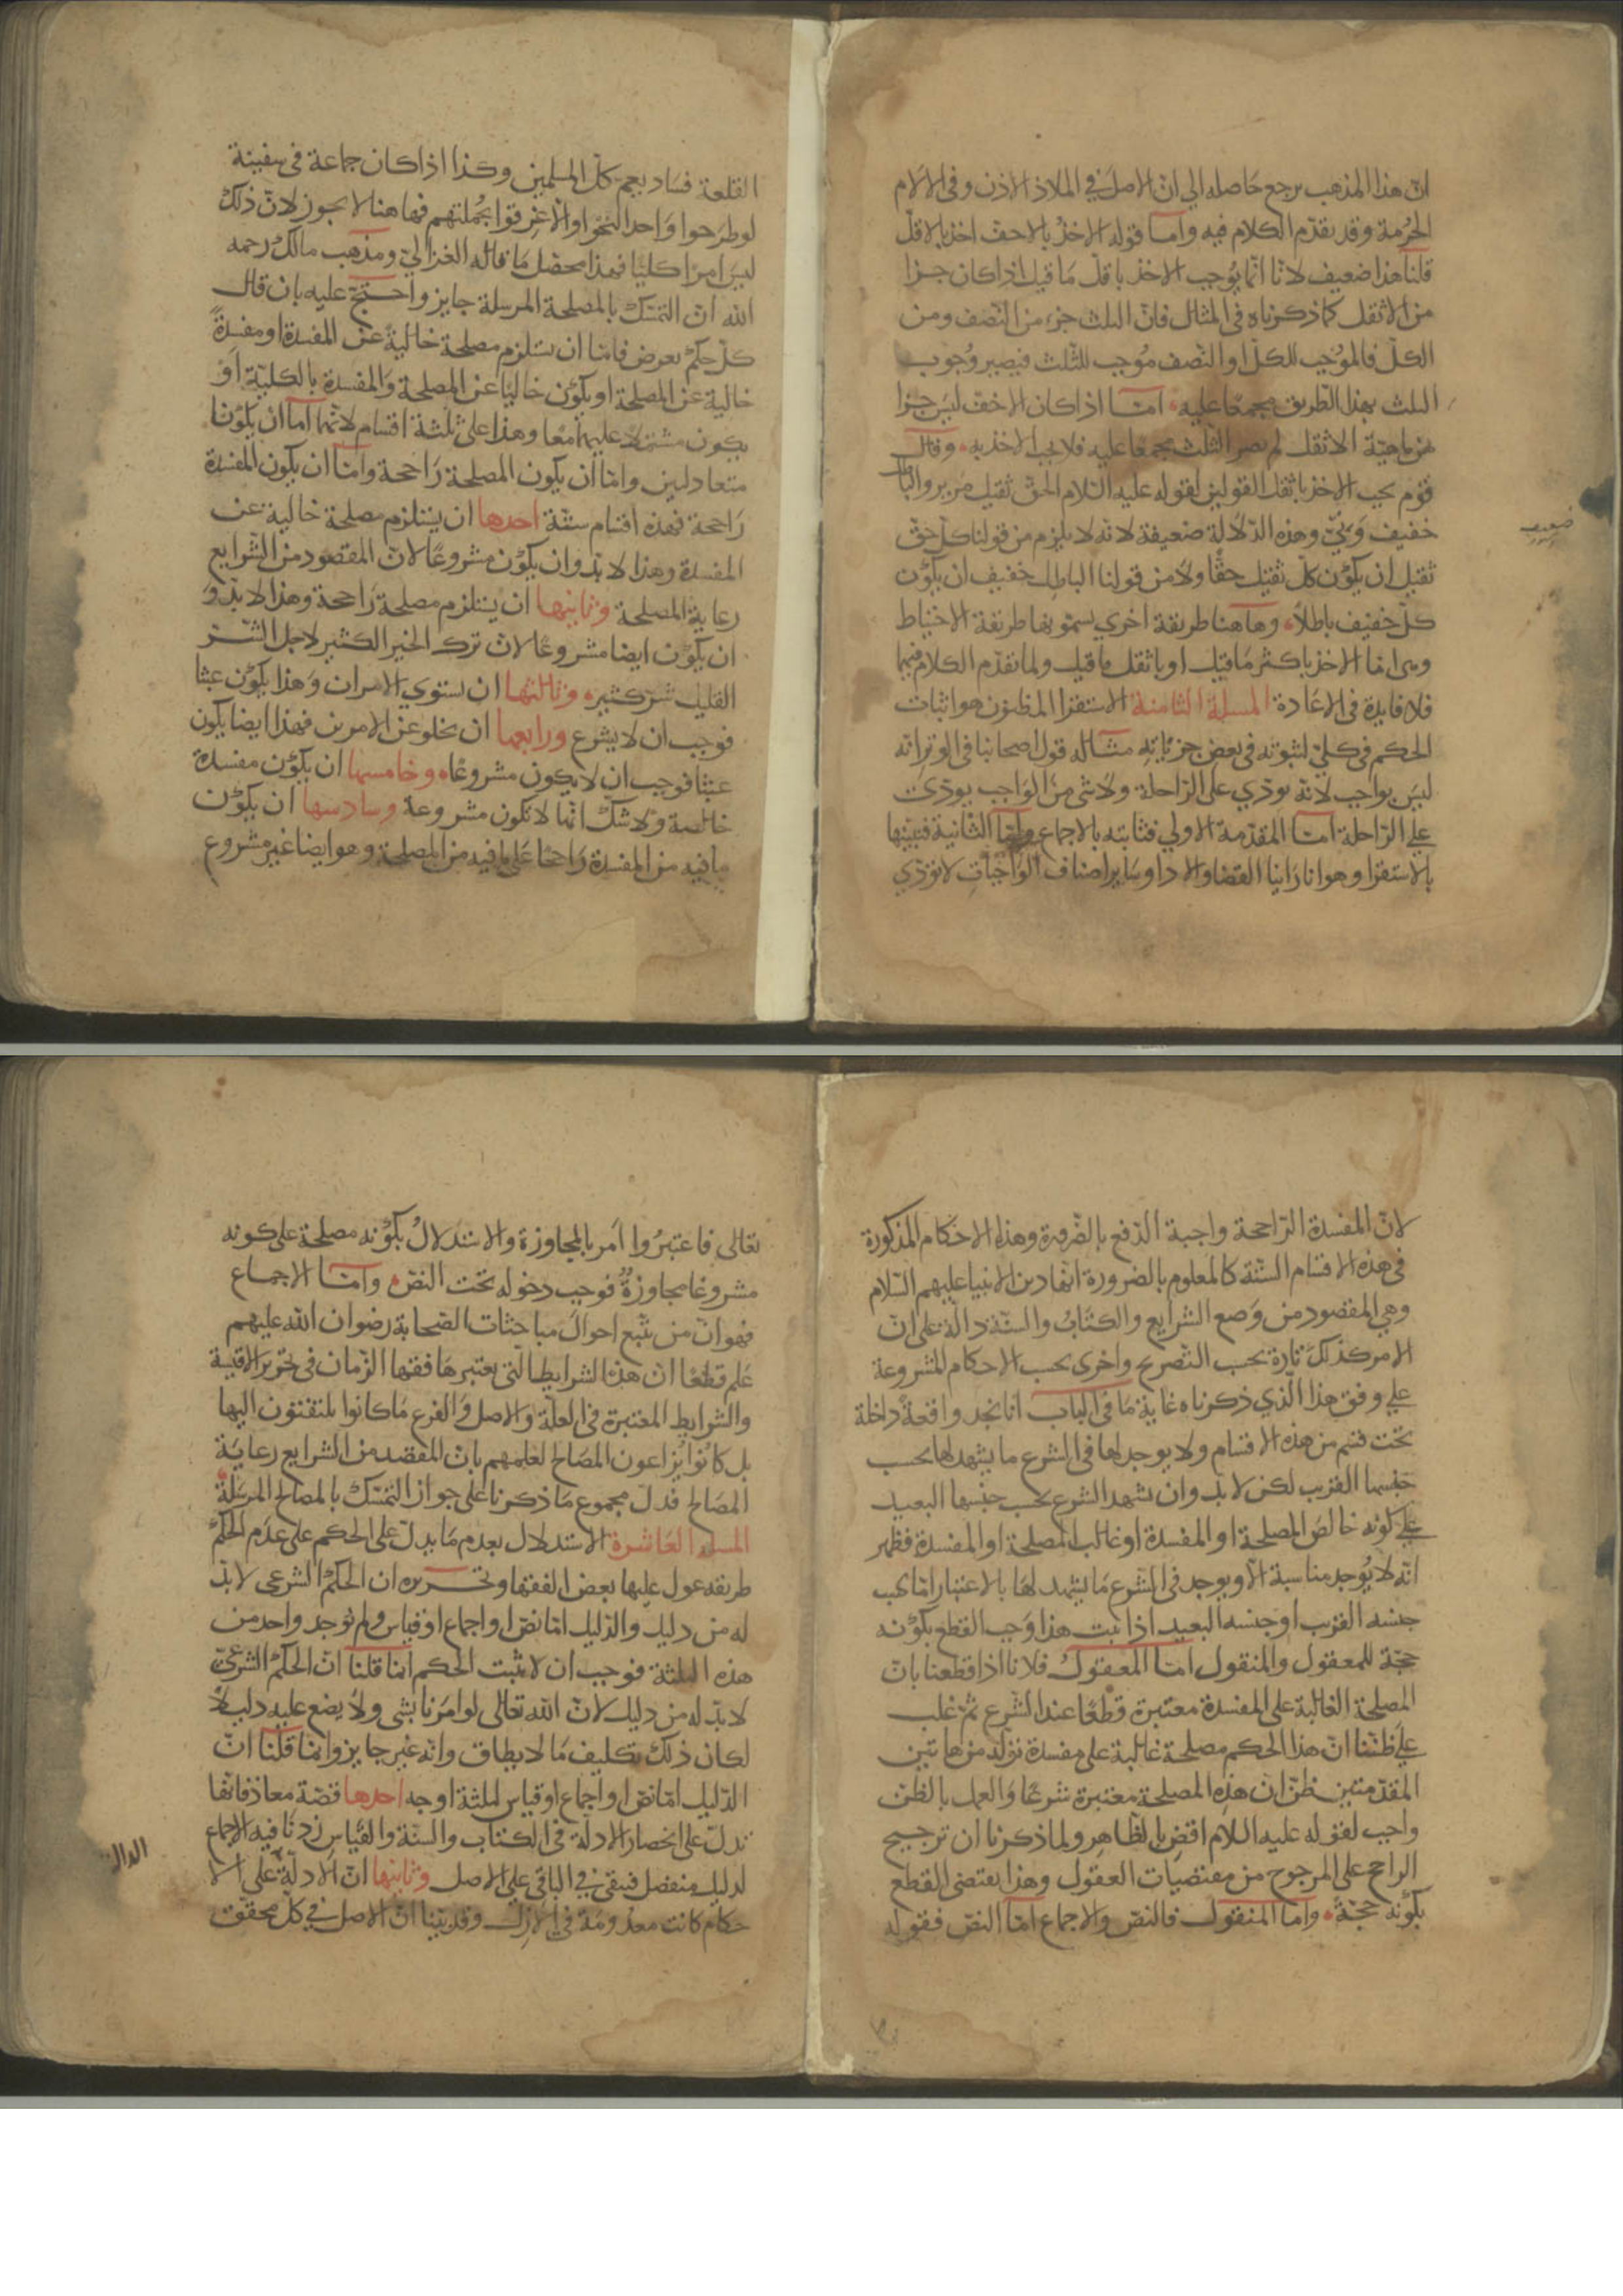 انّ هذا المذهب يرجع حاصله الي انّ الاصل في الملاذ الاذن وفي الالام
الحُرمة وقد تقدّم الكلام فيه وامّا قوله الاخذُ بالاخفّ اخذ بالاقلّ
قلنا هذا ضعيف لانّا انّما يُوجب الاخذ باقلّ ما قيل اذا كان جزا
من الاثقل كما ذكرناه في المثال فانّ الثلث جزء من النّصف ومن
الكلّ فالمُوجِب للكلّ او النّصف مُوجب للثّلث فيصير وُجوب
الثلث بهذا الطّريق مجمعًا عليه امّا اذا كان الاخفّ ليس جزا
من ماهيّة الاثقل لم يصر الثّلث مجمعا عليه فلا يجب الاخذ به وقال
قوم يجب الاخذ باثقل القولين لقوله عليه السّلام الحقّ ثقيل مرير والباطل
خفيف وَبيّ وهذه الدّلالة ضعيفة لانّه لا يلزم من قولنا كلّ حقّ
ضعيف
ثقيل ان يكوْن كلّ ثقيل حقًّا ولا من قولنا الباطل خفيف ان يكوْن
كلّ خفيف باطلًا وهاهنا طريقة اخري يسمّونها طريقة الاحتياط
وهي امّا الاخذ باكثر ما قيل او باثقل ما قيل ولما تقدّم الكلام فيهما
فلا فايدة في الاعادة المسلة الثامنة الاستقرا المظنون هو اثبات
الحكم في كليّ لثبوته في بعض جزئياته مثاله قول اصحابنا في الوتر انّه
ليس بواجب لانّه يودّي علي الرّاحلة ولا شي من الواجب يودّي
علي الرّاحلة امّا المقدّمة الاولي فثابتة بالاجماع وامّا الثّانية فنبيّنها
بالاستقرا وهو انا راينا القضا والادا وساير اصناف الواجبات لا تودّي
القلعة فساد يعم كلّ المسلمين وكذا اذا كان جماعة في سفينة
لو طرحوا واحدا لنجوا والّا غرقوا بجُملتهم فهاهنا لا يجوز لانّ ذلك
ليس امرًا كليّا فهذا محصّل ما قاله الغزاليّ ومذهب مالك رحمه
الله انّ التمسّك بالمصلحة المرسلة جايز واحتجّ عليه بان قال
كلّ حكم يعرض فامّا ان يستلزم مصلحة خالية عن المفسدة او مفسدة
خالية عن المصلحة او يكوْن خاليا عن المصلحة والمفسدة بالكليّة او
يكون مشتملا عليهما معًا وهذا علي ثلثة اقسام لانّهما امّا ان يكونا
متعادلين وامّا ان يكون المصلحة راجحة وامّا ان يكون المفسدة
راجحة فهذه اقسام ستّة احدها ان يستلزم مصلحة خالية عن
المفسدة وهذا لا بدّ وان يكوْن مشروعًا لانّ المقصود من الشّرايع
رعاية المصلحة وثانيها ان يستلزم مصلحة راجحة وهذا لا بدّ و
ان يكوْن ايضا مشروعًا لانّ ترك الخير الكثير لاجل الشّرّ
القليل شرّ كثير وثالثها ان يستوي الامران وهذا يكوْن عبثا
فوجب ان لا يشرع ورابعها ان يخلو عن الامرين فهذا ايضا يكون
عبثا فوجب ان لا يكون مشروعًا وخامسها ان يكوْن مفسدة
خالصة ولا شكّ انّها لا تكون مشروعة وسادسها ان يكوْن
ما فيه من المفسدة راجحا علي ما فيه من المصلحة وهو ايضا غير مشروع
لانّ المفسدة الرّاجحة واجبة الدّفع بالضّرورة وهذه الاحكام المذكورة
في هذه الاقسام السّتّة كالمعلوم بالضرورة انّها دين الانبيا عليهم السّلام
وهي المقصود من وَضع الشرايع والكتابُ والسنّة دالّة علي انّ
الامر كذلك تارة بحسب التّصريح واخري بحسب الاحكام المشروعة
علي وفق هذا الّذي ذكرناه غاية ما في الباب انا نجد واقعة داخلة
تحت قسم من هذه الاقسام ولا يوجد لها في الشرع ما يشهد لها بحسب
جنسها القريب لكن لا بدّ وان يشهد الشرع بحسب جنسها البعيد
علي كونه خالص المصلحة او المفسدة او غالب المصلحة او المفسدة فظهر
انّه لا يُوجد مناسبة الّا ويوجد في الشّرع ما يشهد لها بالاعتبار امّا بحسب
جنسه القريب او جنسه البعيد اذا ثبت هذا وَجب القطع بكوْنه
حجّة للمعقول والمنقول امّا المعقول فلانا اذا قطعنا بانّ
المصلحة الغالبة علي المفسدة معتبرة قطعًا عند الشّرع ثمّ غلب
علي ظنّنا انّ هذا الحكم مصلحة غالبة علي مفسدة تولّد من هاتين
المقدّمتين ظنّ انّ هذه المصلحة معتبرة شرعًا والعمل بالظنّ
واجب لقوله عليه السّلام اقضِ بالظاهر ولما ذكرنا ان ترجيح
الراجح علي المرجوح من مقتضيات العقول وهذا يقتضي القطع
بكوْنه حجّة وامّا المنقول فالنصّ والاجماع امّا النصّ فقوله
تعالي فاعتبرُوا اَمر بالمجاوزة والاستدلالُ بكوْنه مصلحة علي كونه
مشروعًا مجاوزةٌ فوجب دخوله تحت النصّ وامّا الاجماع
فهُو انّ من تتّبع احوال مباحثات الصّحابة رضوان الله عليهم
عَلم قطعًا انّ هذه الشرايط الّتي يعتبرها فقها الزّمان في تحرير الاقيسة
والشرايط المعتبرة في العلّة والاصل والفرع ما كانوا يلتفتون اليها
بل كانُوا يُراعون المصالح لعلمهم بانّ المقصد من الشرايع رعاية
المصالح فدلّ مجموع ما ذكرنا علي جواز التمسّك بالمصالح المرسلة
المسلة العاشرة الاستدلال بعدم ما يدلّ علي الحكم علي عدم الحكم
طريقة عول عليها بعض الفقها وتحريره ان الحكم الشرعي لا بدّ
له من دليل والدّليل امّا نصّ او اجماع او قياس ولم توجد واحد من
هذه الثلثة فوجب ان لا يثبت الحكم انّما قلنا انّ الحكم الشرعيّ
لا بدّ له من دليل لانّ الله تعالي لو امرنا بشي ولا يضع عليه دليلًا
لكان ذلك تكليف ما لا يطاق وانّه غير جايز وانّما قلنا انّ
الدّليل امّا نصّ او اجماع او قياس لثلثة اوجه احدها قصّة معاذ فانّها
تدلّ علي انحصار الادلّة في الكتاب والسنّة والقياس زدنا فيه الاجماع
لدليل منفصل فيبقي في الباقي علي الاصل وثانيها انّ الادلّة علي الا
حكام كانت معدُومة في الازل وقد بيّنا انّ الاصل في كلّ محقّق